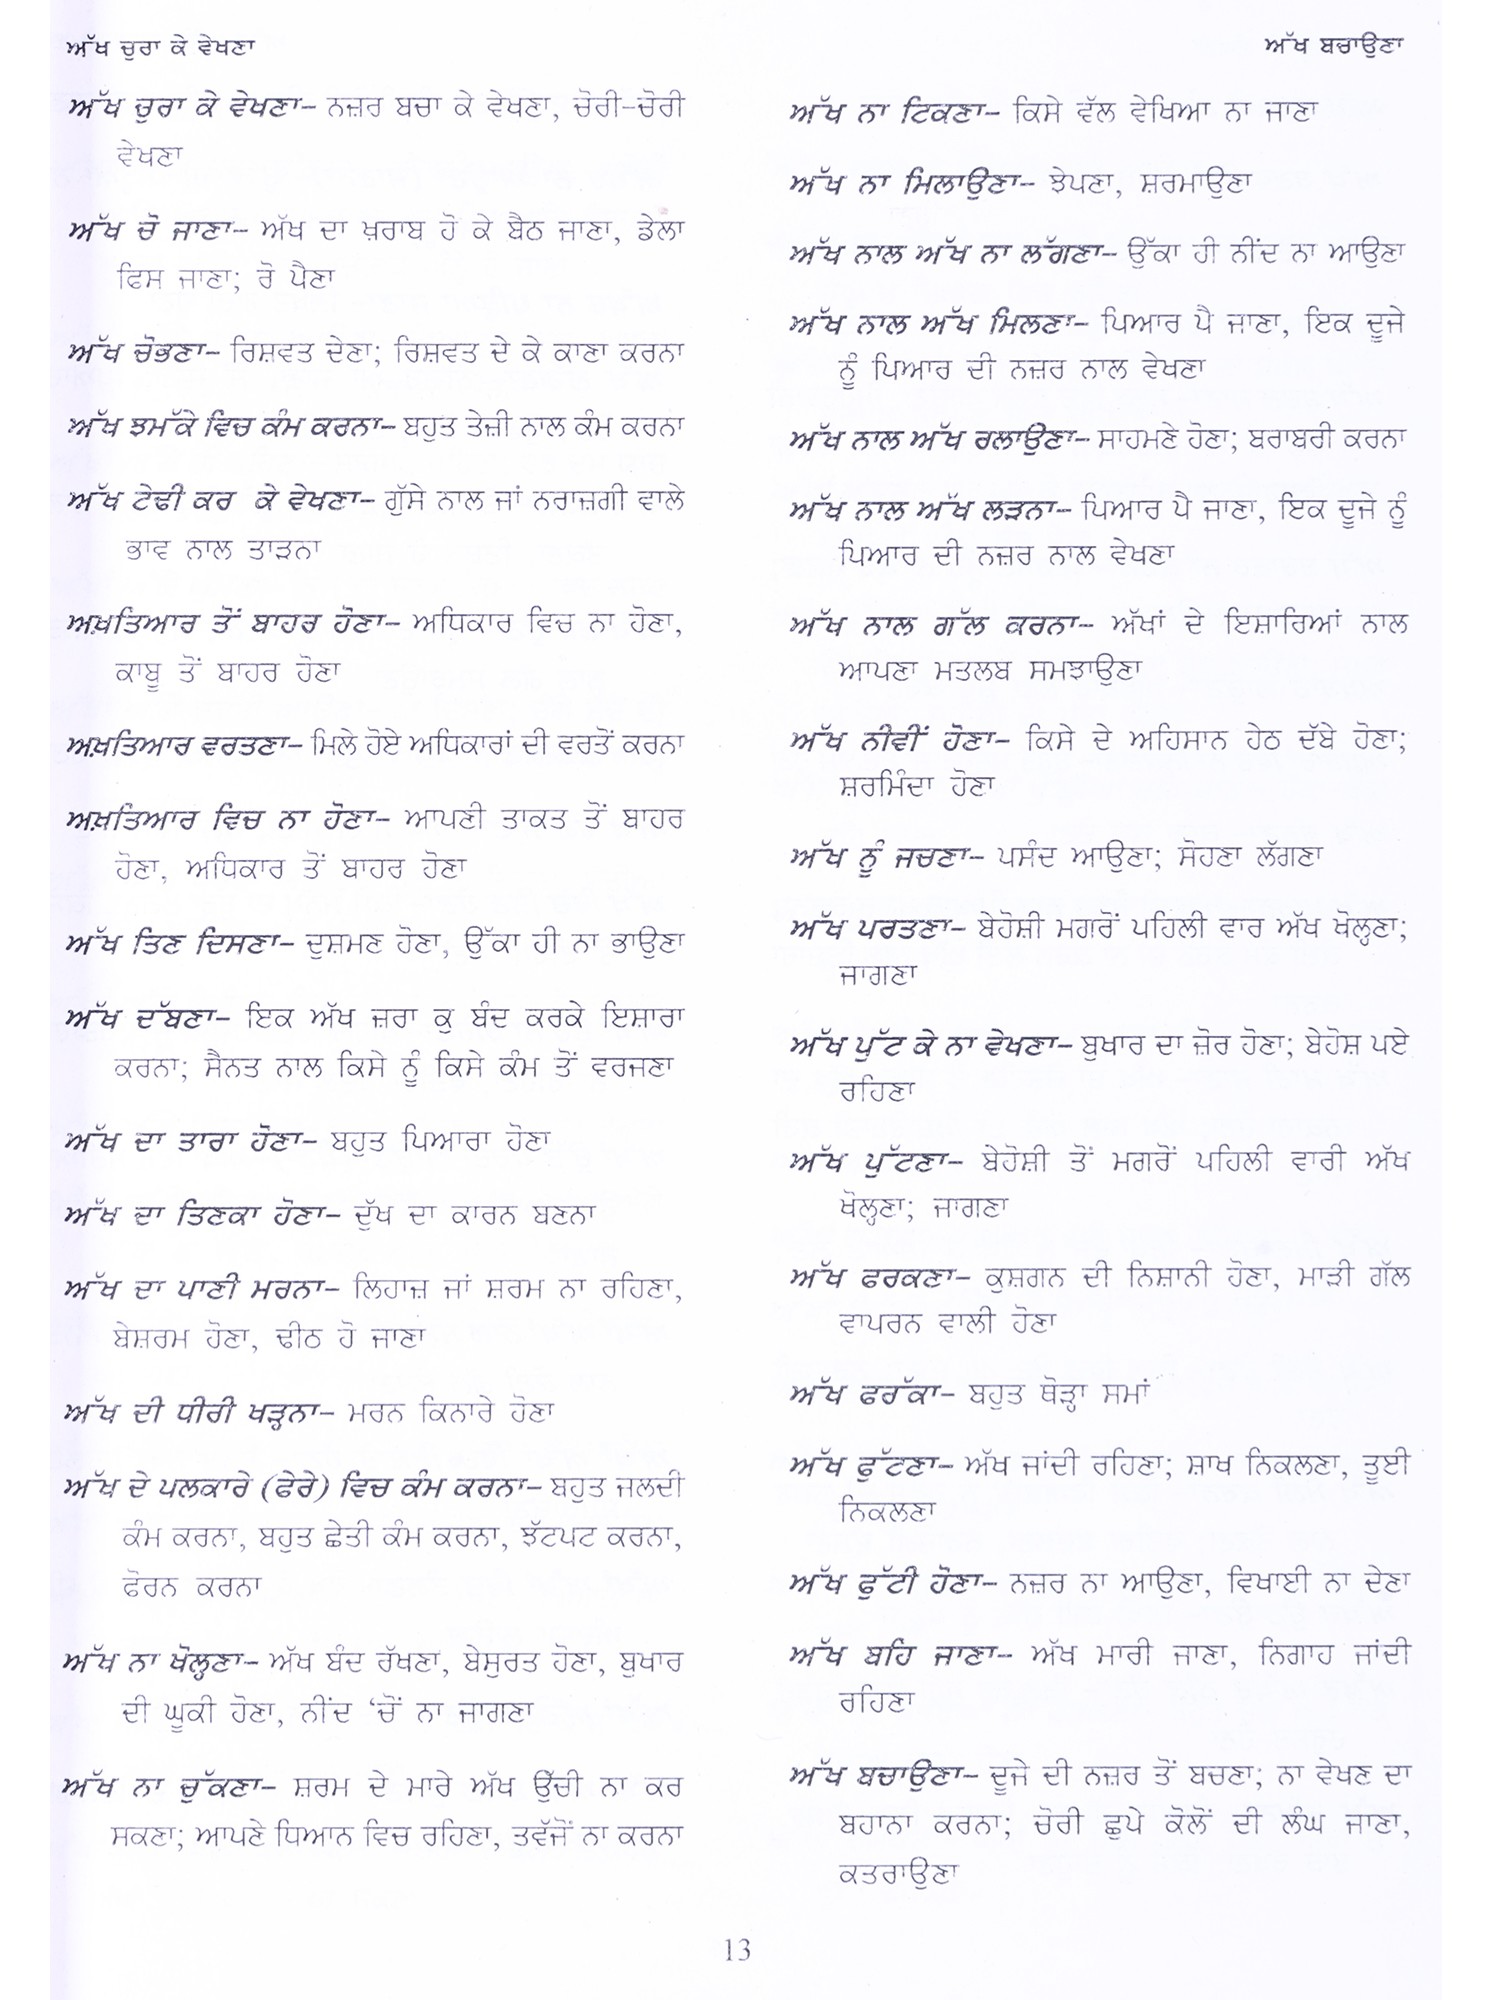 ਅੱਖ ਚੁਰਾ ਕੇ ਵੇਖਣਾ
ਅੱਖ ਬਚਾਉਣਾ
ਅੱਖ ਚੁਰਾ ਕੇ ਵੇਖਣਾ– ਨਜ਼ਰ ਬਚਾ ਕੇ ਵੇਖਣਾ, ਚੋਰੀ-ਚੋਰੀ
ਵੇਖਣਾ
ਅੱਖ ਚੋ ਜਾਣਾ– ਅੱਖ ਦਾ ਖ਼ਰਾਬ ਹੋ ਕੇ ਬੈਠ ਜਾਣਾ, ਡੇਲਾ
ਫਿਸ ਜਾਣਾ; ਰੋ ਪੈਣਾ
ਅੱਖ ਚੋਭਣਾ– ਰਿਸ਼ਵਤ ਦੇਣਾ; ਰਿਸ਼ਵਤ ਦੇ ਕੇ ਕਾਣਾ ਕਰਨਾ
ਅੱਖ ਝਮੱਕੇ ਵਿਚ ਕੰਮ ਕਰਨਾ– ਬਹੁਤ ਤੇਜ਼ੀ ਨਾਲ ਕੰਮ ਕਰਨਾ
ਅੱਖ ਟੇਢੀ ਕਰ ਕੇ ਵੇਖਣਾ– ਗੁੱਸੇ ਨਾਲ ਜਾਂ ਨਰਾਜ਼ਗੀ ਵਾਲੇ
ਭਾਵ ਨਾਲ ਤਾੜਨਾ
ਅਖ਼ਤਿਆਰ ਤੋਂ ਬਾਹਰ ਹੋਣਾ– ਅਧਿਕਾਰ ਵਿਚ ਨਾ ਹੋਣਾ,
ਕਾਬੂ ਤੋਂ ਬਾਹਰ ਹੋਣਾ
ਅਖ਼ਤਿਆਰ ਵਰਤਣਾ– ਮਿਲੇ ਹੋਏ ਅਧਿਕਾਰਾਂ ਦੀ ਵਰਤੋਂ ਕਰਨਾ
ਅਖ਼ਤਿਆਰ ਵਿਚ ਨਾ ਹੋਣਾ– ਆਪਣੀ ਤਾਕਤ ਤੋਂ ਬਾਹਰ
ਹੋਣਾ, ਅਧਿਕਾਰ ਤੋਂ ਬਾਹਰ ਹੋਣਾ
ਅੱਖ ਤਿਣ ਦਿਸਣਾ– ਦੁਸ਼ਮਣ ਹੋਣਾ, ਉੱਕਾ ਹੀ ਨਾ ਭਾਉਣਾ
ਅੱਖ ਦੱਬਣਾ– ਇਕ ਅੱਖ ਜ਼ਰਾ ਕੁ ਬੰਦ ਕਰਕੇ ਇਸ਼ਾਰਾ
ਕਰਨਾ; ਸੈਨਤ ਨਾਲ ਕਿਸੇ ਨੂੰ ਕਿਸੇ ਕੰਮ ਤੋਂ ਵਰਜਣਾ
ਅੱਖ ਦਾ ਤਾਰਾ ਹੋਣਾ– ਬਹੁਤ ਪਿਆਰਾ ਹੋਣਾ
ਅੱਖ ਦਾ ਤਿਣਕਾ ਹੋਣਾ– ਦੁੱਖ ਦਾ ਕਾਰਨ ਬਣਨਾ
ਅੱਖ ਦਾ ਪਾਣੀ ਮਰਨਾ– ਲਿਹਾਜ਼ ਜਾਂ ਸ਼ਰਮ ਨਾ ਰਹਿਣਾ,
ਬੇਸ਼ਰਮ ਹੋਣਾ, ਢੀਠ ਹੋ ਜਾਣਾ
ਅੱਖ ਦੀ ਧੀਰੀ ਖੜ੍ਹਨਾ– ਮਰਨ ਕਿਨਾਰੇ ਹੋਣਾ
ਅੱਖ ਦੇ ਪਲਕਾਰੇ (ਫੇਰੇ) ਵਿਚ ਕੰਮ ਕਰਨਾ– ਬਹੁਤ ਜਲਦੀ
ਕੰਮ ਕਰਨਾ, ਬਹੁਤ ਛੇਤੀ ਕੰਮ ਕਰਨਾ, ਝੱਟਪਟ ਕਰਨਾ,
ਫੋਰਨ ਕਰਨਾ
ਅੱਖ ਨਾ ਖੋਲ੍ਹਣਾ– ਅੱਖ ਬੰਦ ਰੱਖਣਾ, ਬੇਸੁਰਤ ਹੋਣਾ, ਬੁਖਾਰ
ਦੀ ਘੂਕੀ ਹੋਣਾ, ਨੀਂਦ ‘ਚੋਂ ਨਾ ਜਾਗਣਾ
ਅੱਖ ਨਾ ਚੁੱਕਣਾ– ਸ਼ਰਮ ਦੇ ਮਾਰੇ ਅੱਖ ਉੱਚੀ ਨਾ ਕਰ
ਸਕਣਾ; ਆਪਣੇ ਧਿਆਨ ਵਿਚ ਰਹਿਣਾ, ਤਵੱਜੋਂ ਨਾ ਕਰਨਾ
ਅੱਖ ਨਾ ਟਿਕਣਾ– ਕਿਸੇ ਵੱਲ ਵੇਖਿਆ ਨਾ ਜਾਣਾ
ਅੱਖ ਨਾ ਮਿਲਾਉਣਾ– ਝੇਪਣਾ, ਸ਼ਰਮਾਉਣਾ
ਅੱਖ ਨਾਲ ਅੱਖ ਨਾ ਲੱਗਣਾ– ਉੱਕਾ ਹੀ ਨੀਂਦ ਨਾ ਆਉਣਾ
ਅੱਖ ਨਾਲ ਅੱਖ ਮਿਲਣਾ– ਪਿਆਰ ਪੈ ਜਾਣਾ, ਇਕ ਦੂਜੇ
ਨੂੰ ਪਿਆਰ ਦੀ ਨਜ਼ਰ ਨਾਲ ਵੇਖਣਾ
ਅੱਖ ਨਾਲ ਅੱਖ ਰਲਾਉਣਾ– ਸਾਹਮਣੇ ਹੋਣਾ; ਬਰਾਬਰੀ ਕਰਨਾ
ਅੱਖ ਨਾਲ ਅੱਖ ਲੜਨਾ– ਪਿਆਰ ਪੈ ਜਾਣਾ, ਇਕ ਦੂਜੇ ਨੂੰ
ਪਿਆਰ ਦੀ ਨਜ਼ਰ ਨਾਲ ਵੇਖਣਾ
ਅੱਖ ਨਾਲ ਗੱਲ ਕਰਨਾ– ਅੱਖਾਂ ਦੇ ਇਸ਼ਾਰਿਆਂ ਨਾਲ
ਆਪਣਾ ਮਤਲਬ ਸਮਝਾਉਣਾ
ਅੱਖ ਨੀਵੀਂ ਹੋਣਾ– ਕਿਸੇ ਦੇ ਅਹਿਸਾਨ ਹੇਠ ਦੱਬੇ ਹੋਣਾ;
ਸ਼ਰਮਿੰਦਾ ਹੋਣਾ
ਅੱਖ ਨੂੰ ਜਚਣਾ– ਪਸੰਦ ਆਉਣਾ; ਸੋਹਣਾ ਲੱਗਣਾ
ਅੱਖ ਪਰਤਣਾ– ਬੇਹੋਸ਼ੀ ਮਗਰੋਂ ਪਹਿਲੀ ਵਾਰ ਅੱਖ ਖੋਲ੍ਹਣਾ;
ਜਾਗਣਾ
ਅੱਖ ਪੁੱਟ ਕੇ ਨਾ ਵੇਖਣਾ– ਬੁਖਾਰ ਦਾ ਜ਼ੋਰ ਹੋਣਾ; ਬੇਹੋਸ਼ ਪਏ
ਰਹਿਣਾ
ਅੱਖ ਪੁੱਟਣਾ– ਬੇਹੋਸ਼ੀ ਤੋਂ ਮਗਰੋਂ ਪਹਿਲੀ ਵਾਰੀ ਅੱਖ
ਖੋਲ੍ਹਣਾ; ਜਾਗਣਾ
ਅੱਖ ਫਰਕਣਾ– ਕੁਸ਼ਗਨ ਦੀ ਨਿਸ਼ਾਨੀ ਹੋਣਾ, ਮਾੜੀ ਗੱਲ
ਵਾਪਰਨ ਵਾਲੀ ਹੋਣਾ
ਅੱਖ ਫਰੱਕਾ– ਬਹੁਤ ਥੋੜ੍ਹਾ ਸਮਾਂ
ਅੱਖ ਫੁੱਟਣਾ– ਅੱਖ ਜਾਂਦੀ ਰਹਿਣਾ; ਸ਼ਾਖ ਨਿਕਲਣਾ, ਤੂਈ
ਨਿਕਲਣਾ
ਅੱਖ ਫੁੱਟੀ ਹੋਣਾ– ਨਜ਼ਰ ਨਾ ਆਉਣਾ, ਵਿਖਾਈ ਨਾ ਦੇਣਾ
ਅੱਖ ਬਹਿ ਜਾਣਾ– ਅੱਖ ਮਾਰੀ ਜਾਣਾ, ਨਿਗਾਹ ਜਾਂਦੀ
ਰਹਿਣਾ
ਅੱਖ ਬਚਾਉਣਾ– ਦੂਜੇ ਦੀ ਨਜ਼ਰ ਤੋਂ ਬਚਣਾ; ਨਾ ਵੇਖਣ ਦਾ
ਬਹਾਨਾ ਕਰਨਾ; ਚੋਰੀ ਛੁਪੇ ਕੋਲੋਂ ਦੀ ਲੰਘ ਜਾਣਾ,
ਕਤਰਾਉਣਾ
13